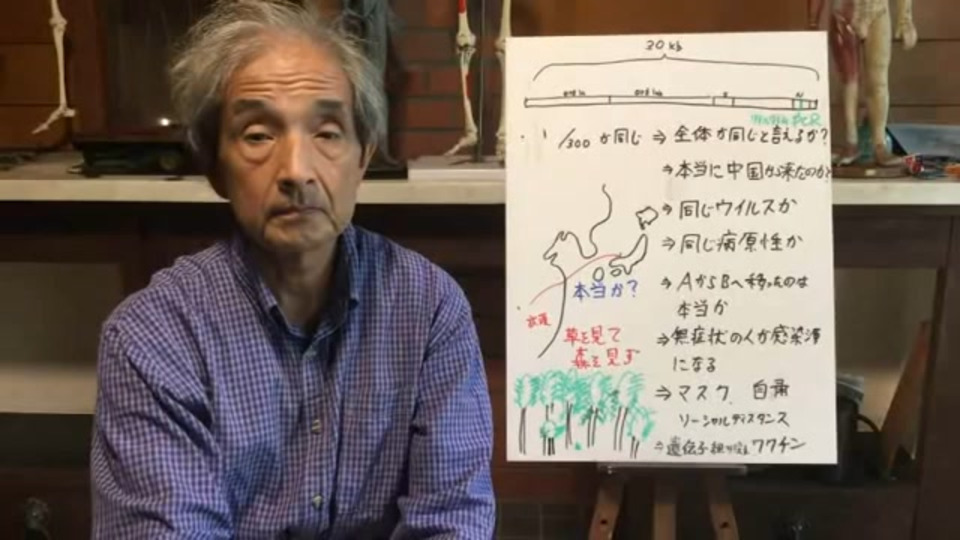 30 kb
ORF 1a ORF 1b S N
PCR
1/300 が同じ ⇒ 全体が同じと言えるか?
⇒ 本当に中国から来たのか?
⇒ 同じウイルスか
⇒ 同じ病原性か
本当か?
⇒ AからBへ移ったのは
本当か
武漢
草を見て
森を見ず
⇒ 無症状の人が感染源
になる
⇒ マスク、自粛
ソーシャルディスタンス
⇒ 遺伝子組み換えワクチン